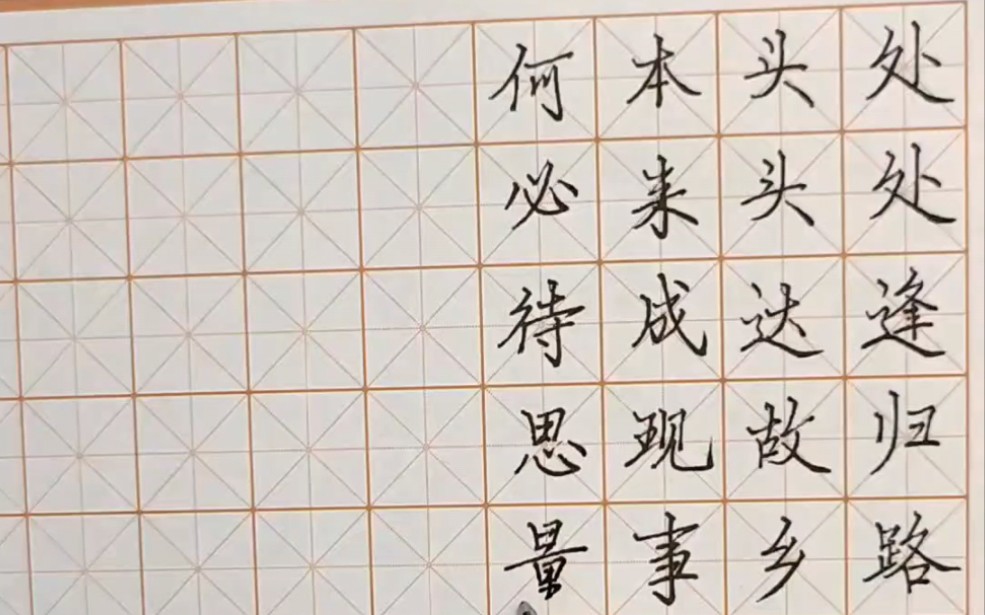 处处逢归路
头头达故乡
本来成现事
何必待思量